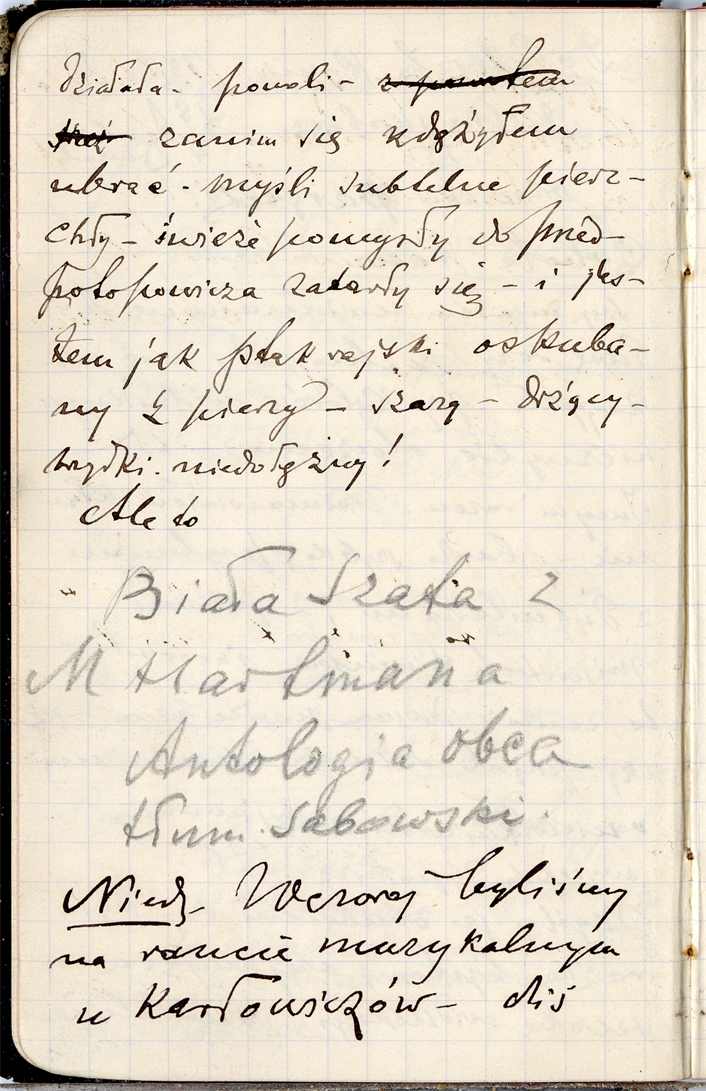 działała - powoli - z powodem
zanim się zdążyłem
ubrać - myśli subtelne pierz-
chły - świeże pomysły do przed-
potopowicza zatarły się - i jes-
tem jak ptak rajski oskuba-
ny z pierzy - szary - drżący -
brzydki. niedołężny!
Ale to
Biała Szata z
M Hartmana
Antologia obca
tłum. Sabowski.
Niedz. Wczoraj byliśmy
na raucie muzykalnym
u Karłowiczów - dziś